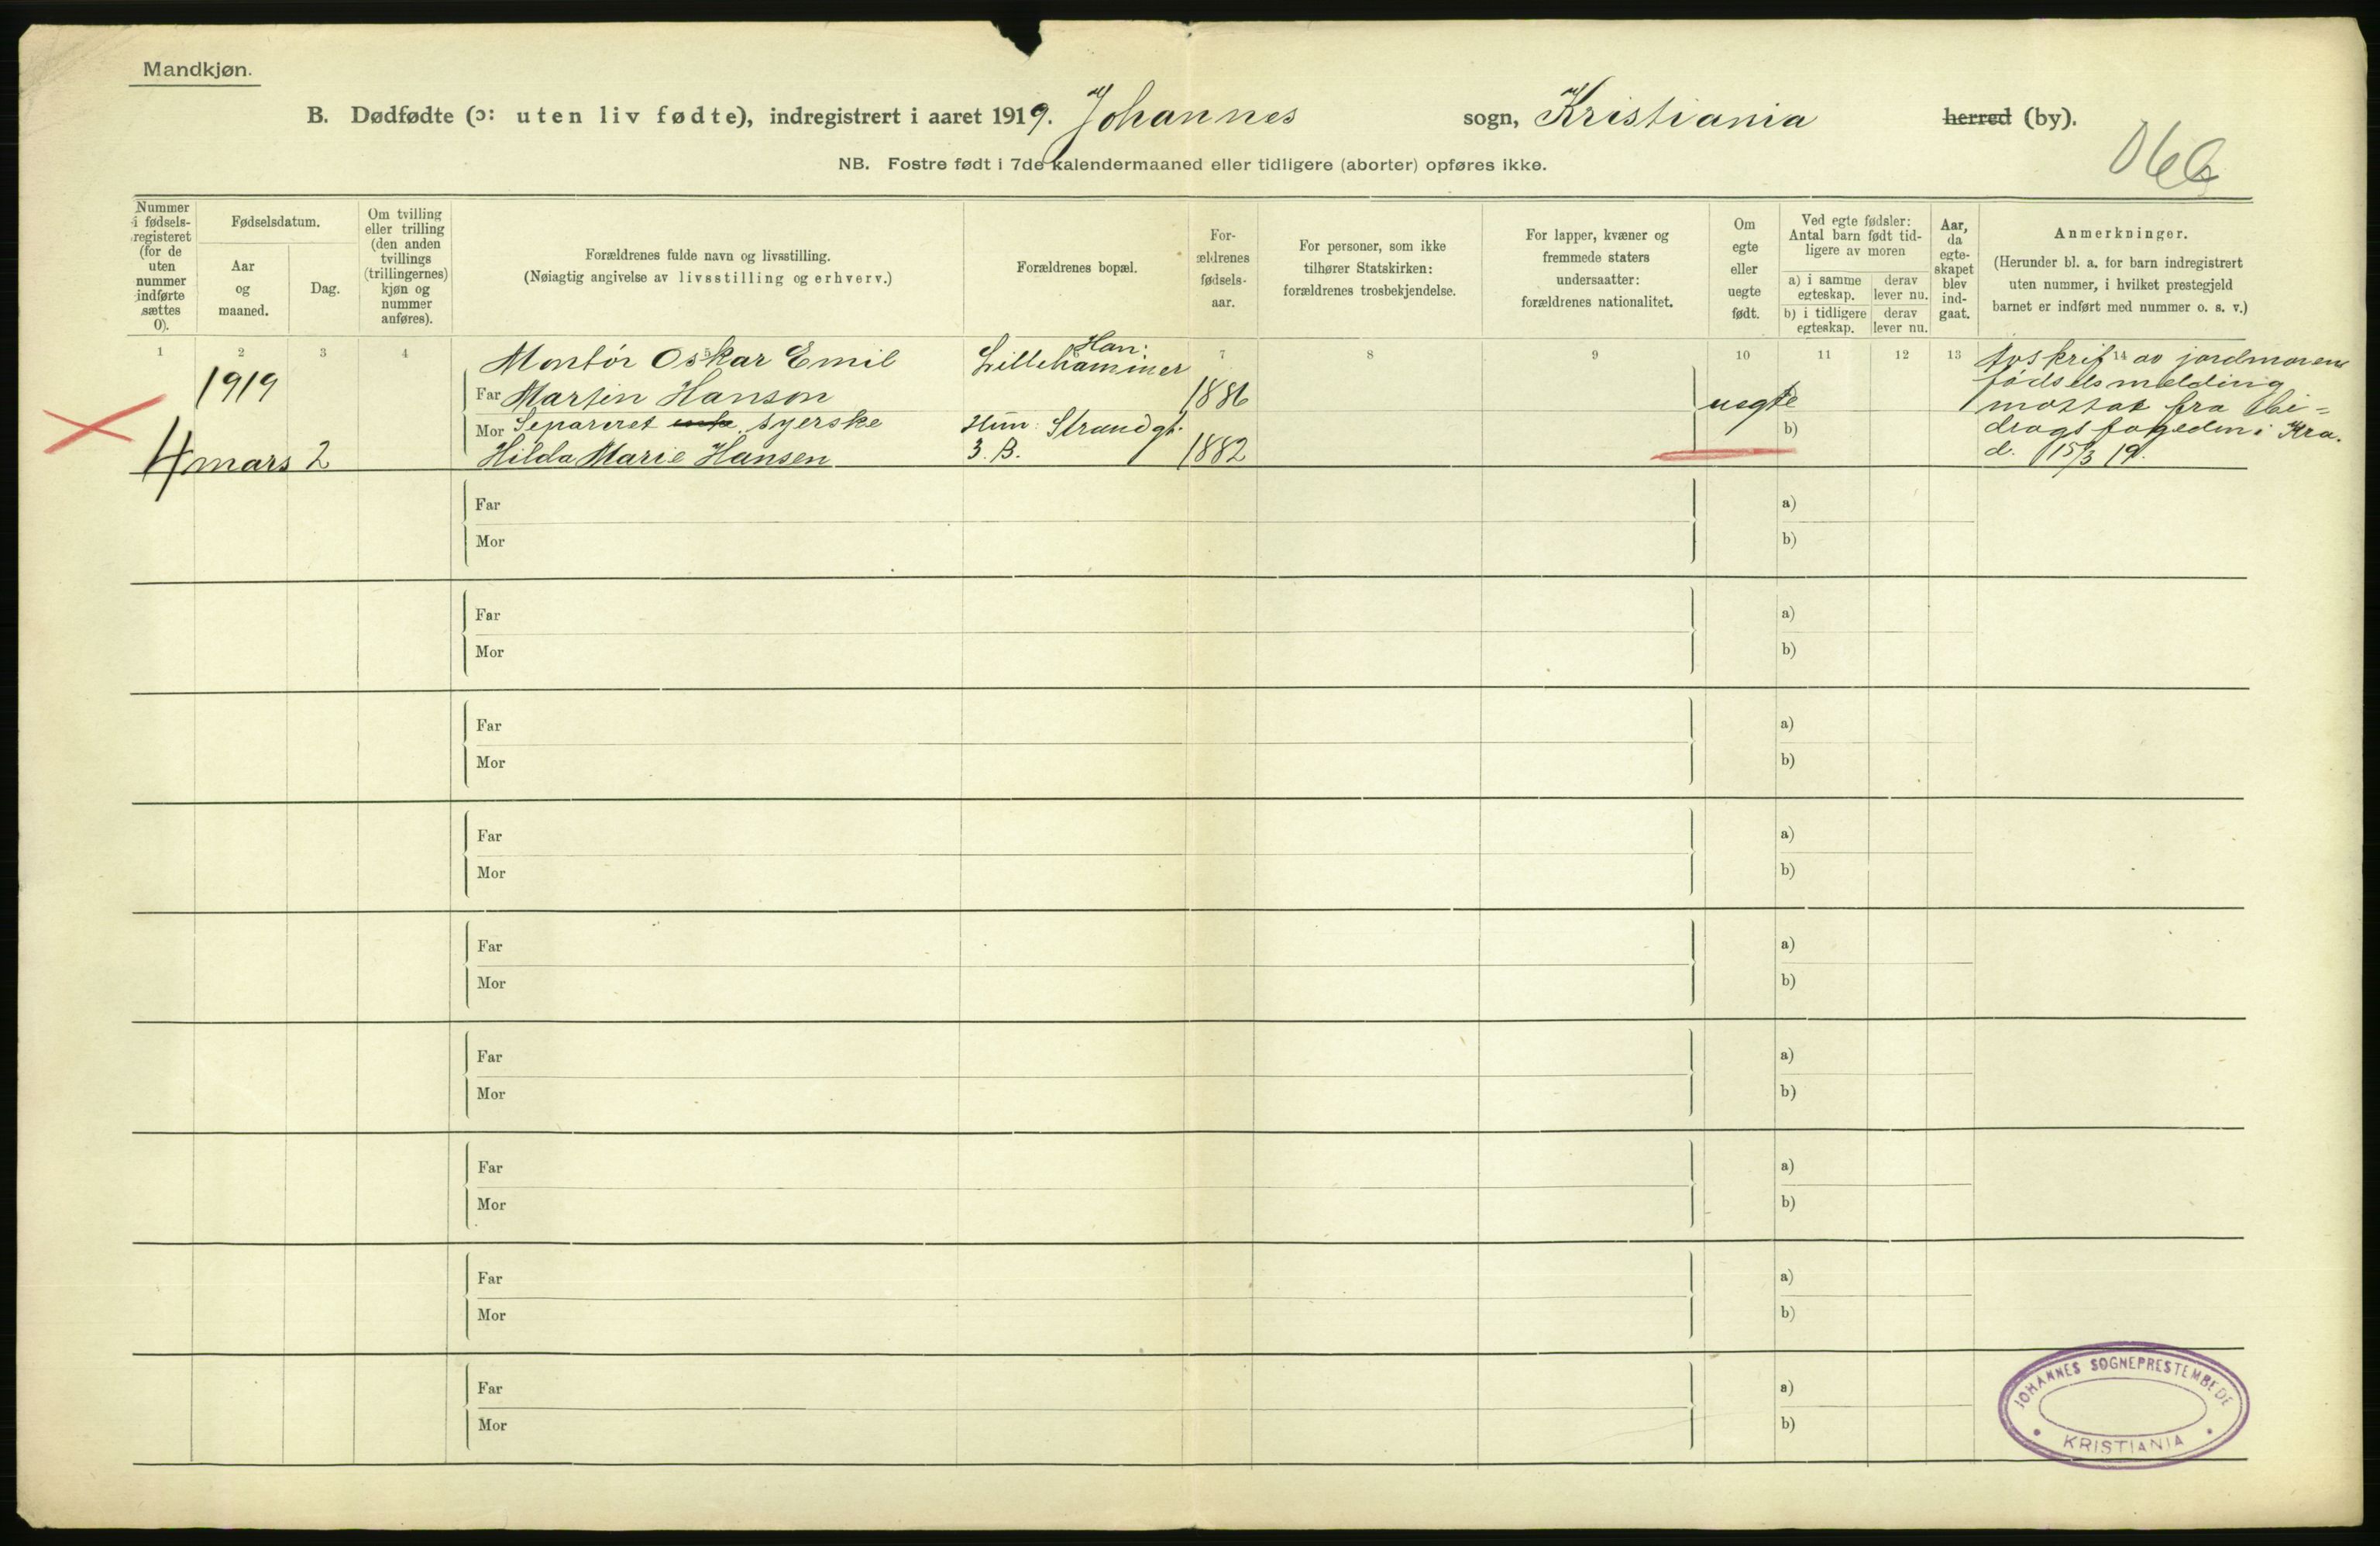 Mandkjøn.
B. Dødfødte (ɔ: uten liv fødte), indregistrert i aaret 1919. Johannes sogn, Kristiania herred (by).
NB. Fostre født i 7de kalendermaaned eller tidligere (aborter) opføres ikke.
Nummer
i fødsels-
registeret
(for de
uten
nummer
indførte
sættes
0).
Fødselsdatum.
Aar
og
maaned.
Dag.
Om tvilling
eller trilling
(den anden
tvillings
(trillingernes)
kjøn og
nummer
anføres).
Forældrenes fulde navn og livsstilling.
(Nøiagtig angivelse av livsstilling og erhverv.)
Forældrenes bopæl.
For-
ældrenes
fødsels-
aar.
For personer, som ikke
tilhører Statskirken:
forældrenes trosbekjendelse.
For lapper, kvæner og
fremmede staters
undersaatter:
forældrenes nationalitet.
Om
egte
eller
uegte
født.
Ved egte fødsler:
Antal barn født tid-
ligere av moren
a) i samme
egteskap.
derav
lever nu.
b) i tidligere
egteskap.
derav
lever nu.
Aar,
da
egte-
skapet
blev
ind-
gaat.
Anmerkninger.
(Herunder bl. a. for barn indregistrert
uten nummer, i hvilket prestegjeld
barnet er indført med nummer o. s. v.)
1 2 3 4 5 7 8 9 10 11 12 13 14
4
1919
mars 2
Montör Oskar Emil
Far Martin Hanson
Mor Separeret syerske
Hilda Marie Hansen
Han:
Lillehammer
Hun: Strandgt.
3. B.
1886
1882
uegte
b)
Avskrift av jordmorens
fødselsmelding
mottat fra bi-
dragsfogeden i Kra.
d. 15/3 19.
Far a)
Mor b)
Far a)
Mor b)
Far a)
Mor b)
Far a)
Mor b)
Far a)
Mor b)
Far a)
Mor b)
Far a)
Mor b)
Far a)
Mor b)
Far a)
Mor b)
JOHANNES SOGNEPRESTEMBEDE
KRISTIANIA